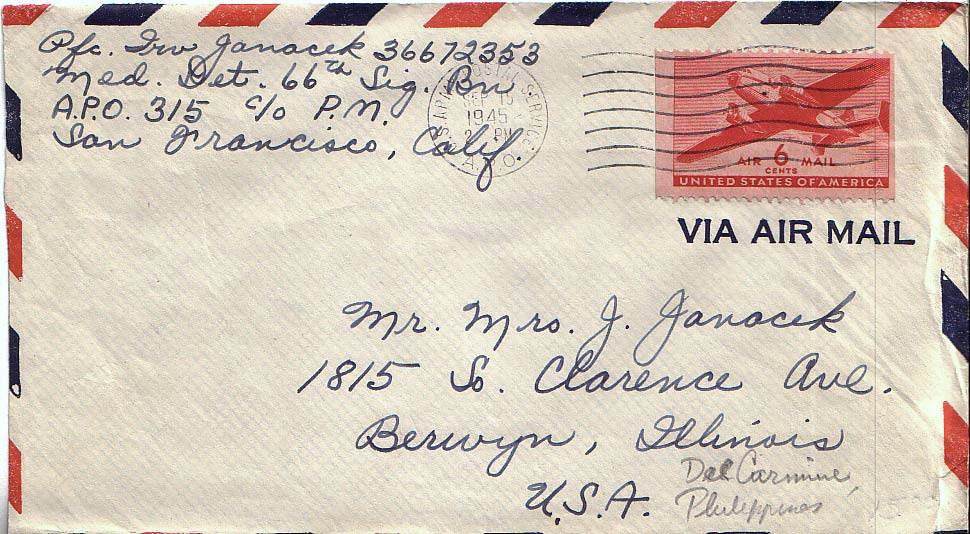 Pfc. Irv Janacek 36672353
Med. Det. 66th Sig. Bn
A.P.O. 315 c/o P.M.
San Francisco, Calif
U.S. ARMY POSTAL SERVICE
SEP 15
1945
PM
A.P.O.
AIR 6 MAIL
CENTS
UNITED STATES OF AMERICA
VIA AIR MAIL
Mr. Mrs. J. Janacek
1815 So. Clarence Ave.
Berwyn, Illinois
U.S.A.
Del Carmine,
Philippines